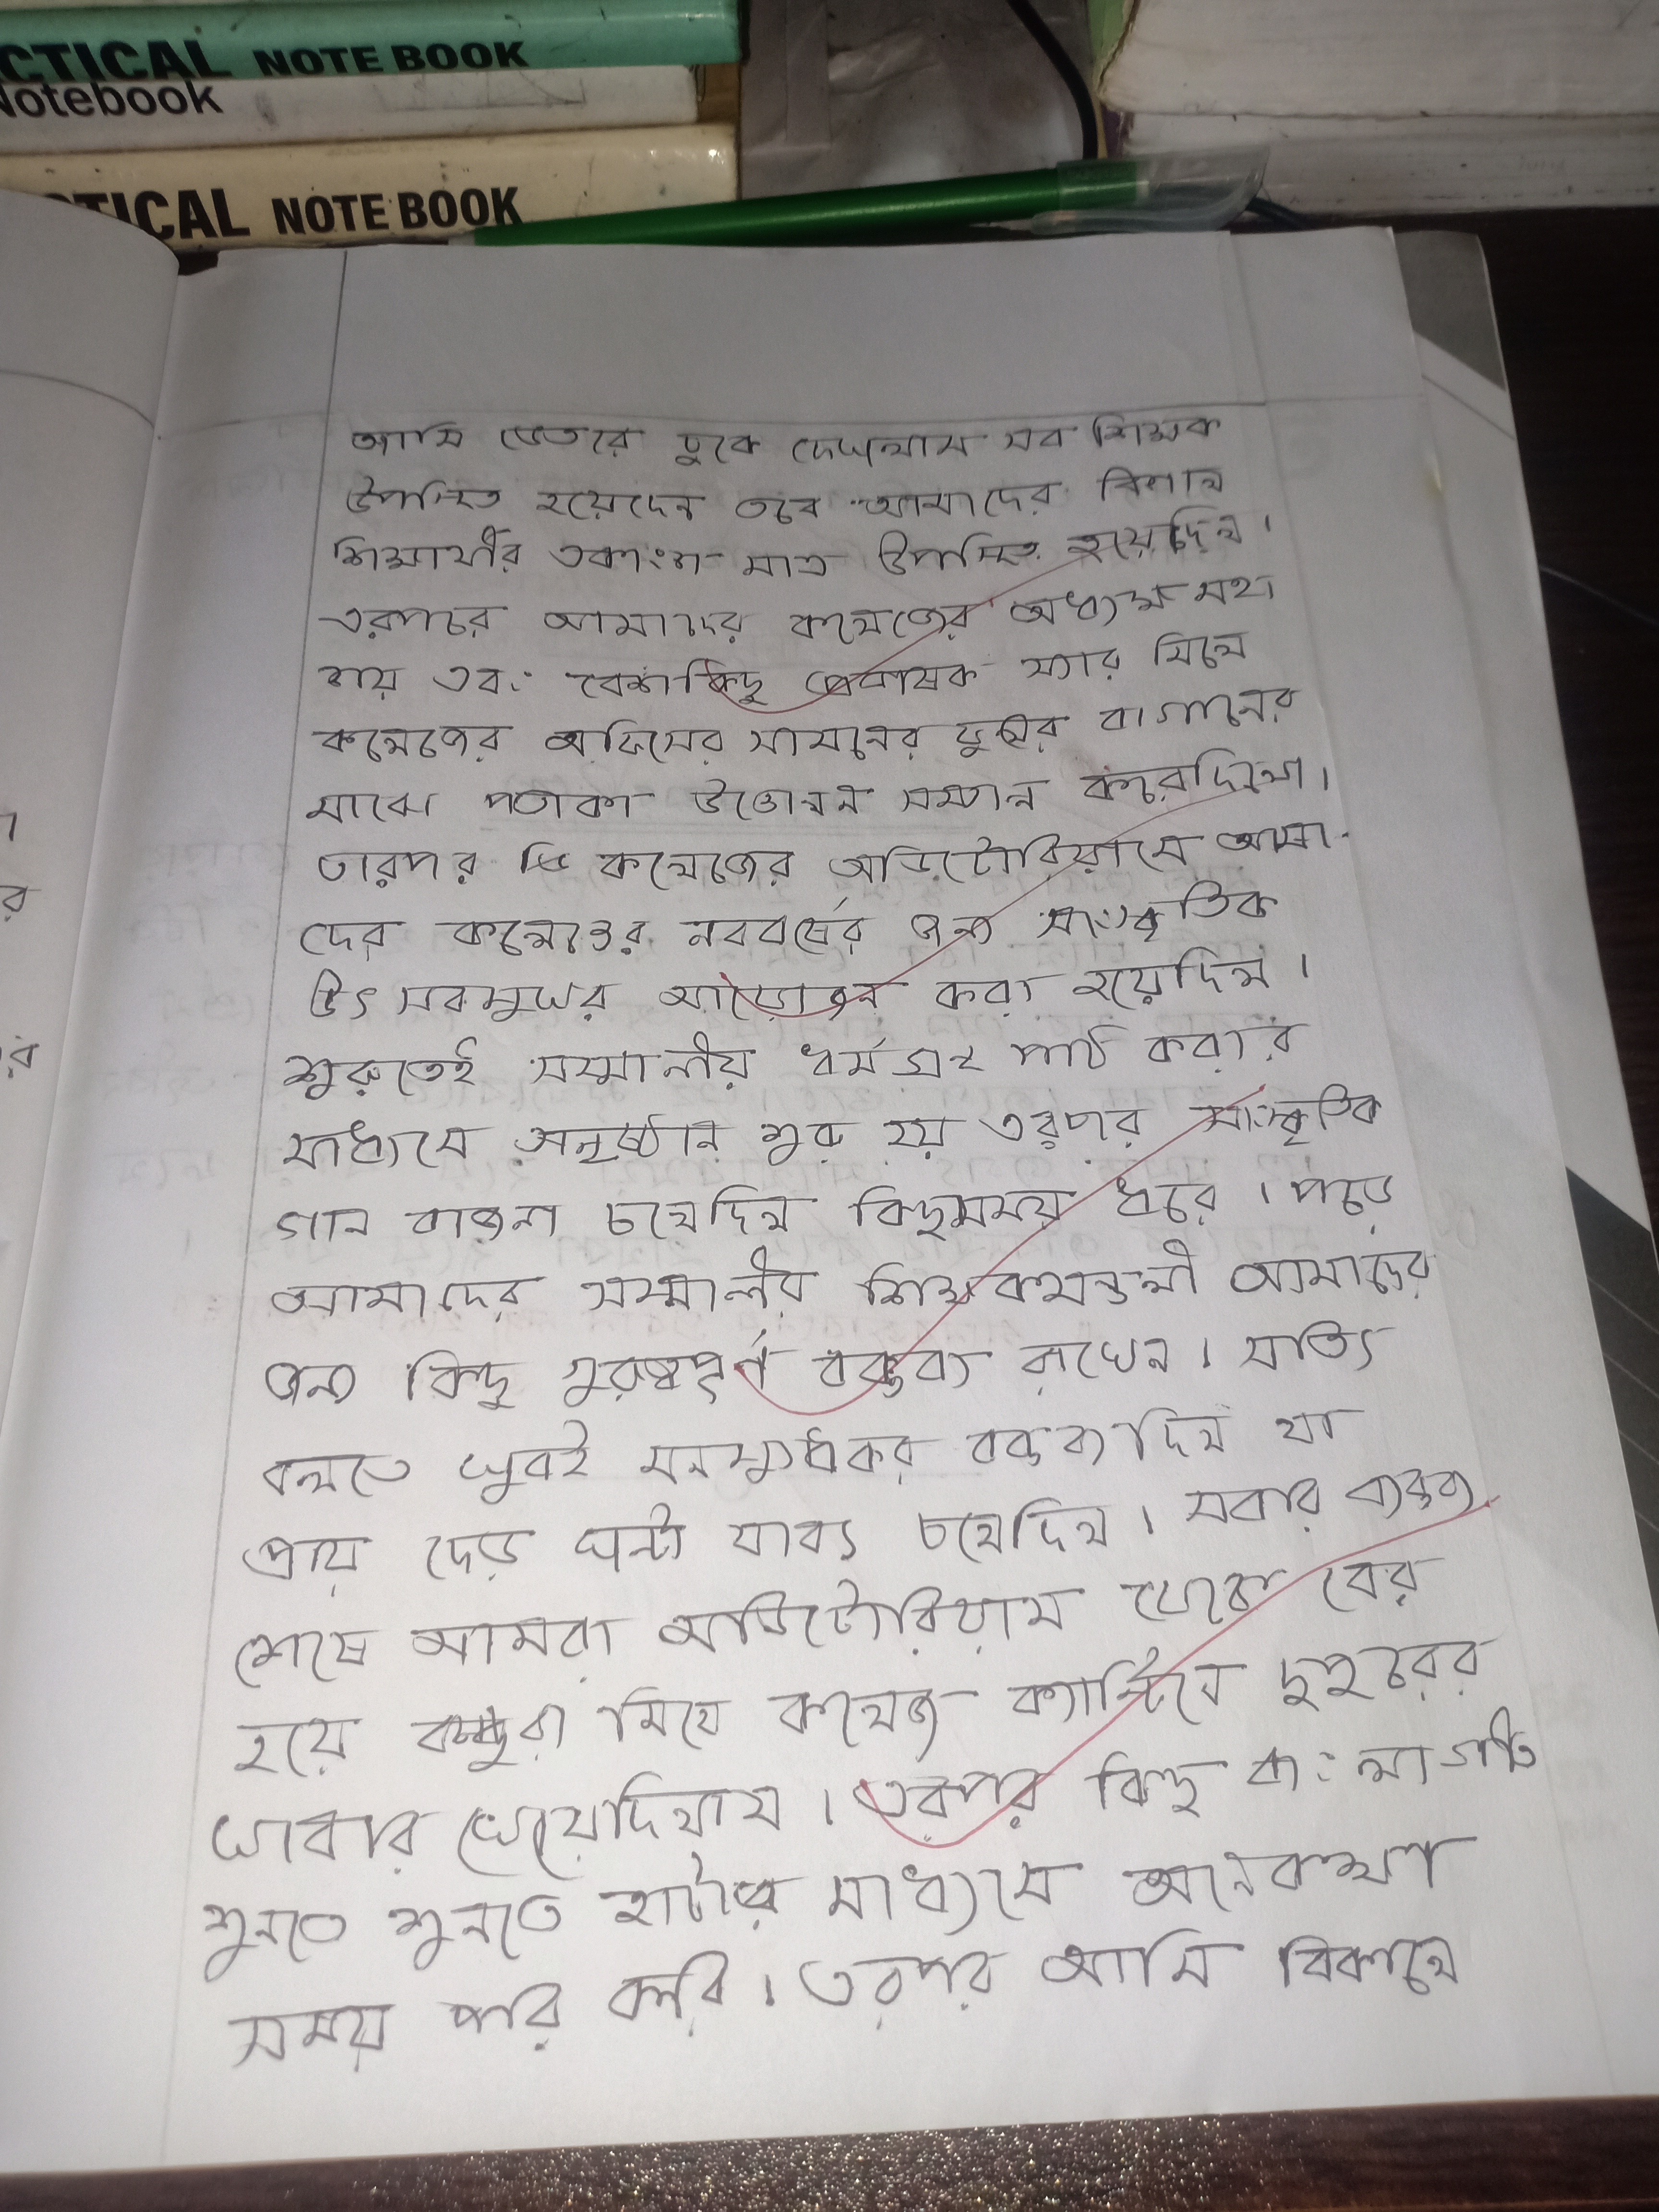 CTICAL NOTE BOOK
Notebook
CTICAL NOTE BOOK
আমি ভেতরে ঢুকে দেখলাম সব শিক্ষক
উপস্থিত হয়েছেন তবে আমাদের বিশাল
শিক্ষার্থীর একাংশ মাত্র উপস্থিত হয়েছিল।
এরপরে আমাদের কলেজের অধ্যক্ষ মহা
শয় এবং বেশকিছু প্রভাষক স্যার মিলে
কলেজের অফিসের সামনের ফুলের বাগানের
মাঝে পতাকা উত্তোলন সম্পন্ন করেছিলো।
তারপর কলেজের অডিটোরিয়ামে আমা-
দের কলেজের নববর্ষের জন্য সাংস্কৃতিক
উৎসবমুখর আয়োজন করা হয়েছিল।
শুরুতেই সম্মানীয় ধর্মগ্রন্থ পাঠ করার
মাধ্যমে অনুষ্ঠান শুরু হয় এরপর সাংস্কৃতিক
গান বাজনা চলেছিল কিছুসময় ধরে। পড়ে
আমাদের সম্মানীয় শিক্ষকমন্ডলী আমাদের
জন্য কিছু গুরুত্বপূর্ণ বক্তব্য রাখেন। সত্যি
বলতে খুবই বক্তব্য ছিল যা
প্রায় দেড় ঘন্টা যাবৎ চলেছিল। সবার বক্তব্য
শেষে আমরা অডিটোরিয়াম থেকে বের
হয়ে বন্ধুরা মিলে কলেজ ক্যান্টিনে দুপুরের
খাবার খেয়েছিলাম। এরপর কিছু বাংলা গান
শুনতে শুনতে মাধ্যমে অনেকক্ষণ
সময় পার করি। এরপর আমি বিকালে
র
র